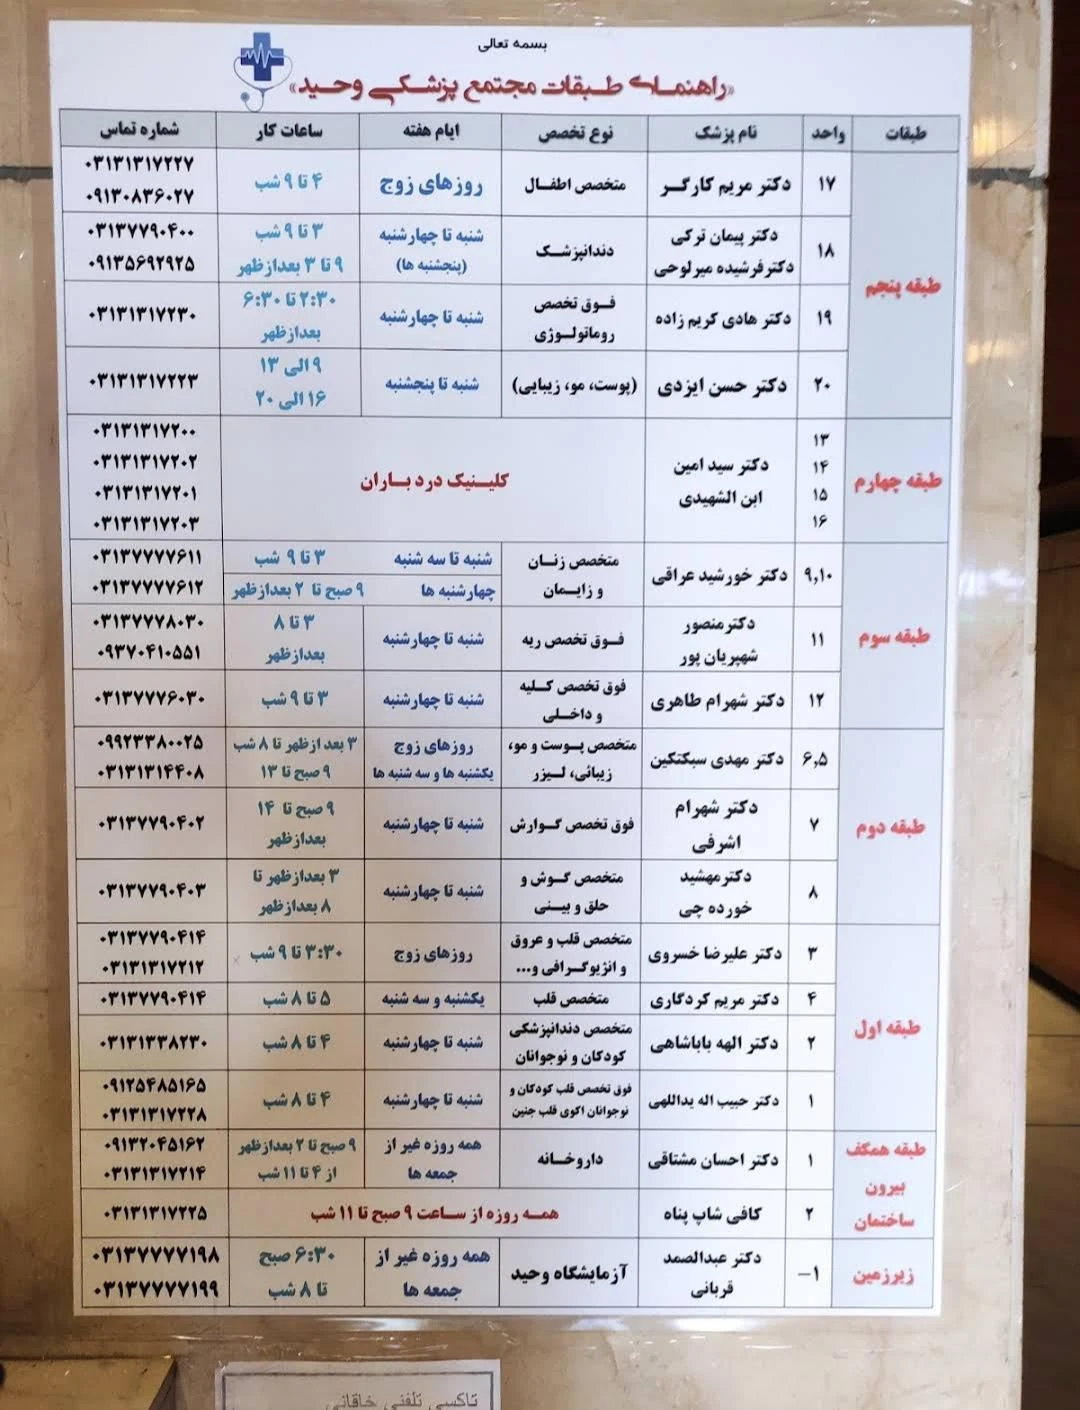 بسمه تعالی
«راهنمای طبقات مجتمع پزشکی وحید»
طبقات واحد نام پزشک نوع تخصص ایام هفته ساعات کار شماره تماس
طبقه پنجم
۱۷ دکتر مریم کارگر متخصص اطفال روزهای زوج ۴ تا ۹ شب ۰۳۱۳۱۳۱۷۲۲۷
۰۹۱۳۰۸۳۶۰۲۷
۱۸ دکتر پیمان ترکی دندانپزشک شنبه تا چهارشنبه ۳ تا ۹ شب ۰۳۱۳۷۷۹۰۴۰۰
دکترفرشیده میرلوحی (پنجشنبه ها) ۹ تا ۳ بعدازظهر ۰۹۱۳۵۶۹۲۹۲۵
۱۹ دکتر هادی کریم زاده فوق تخصص شنبه تا چهارشنبه ۲:۳۰ تا ۶:۳۰ ۰۳۱۳۱۳۱۷۲۳۰
روماتولوژی بعدازظهر
۲۰ دکتر حسن ایزدی (پوست، مو، زیبایی) شنبه تا پنجشنبه ۹ الی ۱۳ ۰۳۱۳۱۳۱۷۲۲۳
۱۶ الی ۲۰
طبقه چهارم
۱۳ ۰۳۱۳۱۳۱۷۲۰۰
۱۴ دکتر سید امین کلینیک درد باران ۰۳۱۳۱۳۱۷۲۰۲
۱۵ ابن الشهیدی ۰۳۱۳۱۳۱۷۲۰۱
۱۶ ۰۳۱۳۱۳۱۷۲۰۳
طبقه سوم
۹,۱۰ دکتر خورشید عراقی متخصص زنان شنبه تا سه شنبه ۳ تا ۹ شب ۰۳۱۳۷۷۷۷۶۱۱
و زایمان چهارشنبه ها ۹ صبح تا ۲ بعدازظهر ۰۳۱۳۷۷۷۷۶۱۲
۱۱ دکترمنصور فوق تخصص ریه شنبه تا چهارشنبه ۳ تا ۸ ۰۳۱۳۷۷۷۸۰۳۰
شهپریان پور بعدازظهر ۰۹۳۷۰۴۱۰۵۵۱
۱۲ دکتر شهرام طاهری فوق تخصص کلیه شنبه تا چهارشنبه ۳ تا ۹ شب ۰۳۱۳۷۷۷۶۰۳۰
و داخلی
طبقه دوم
۶,۵ دکتر مهدی سبکتکین متخصص پوست و مو، روزهای زوج ۳ بعد ازظهر تا ۸ شب ۰۹۹۲۳۳۸۰۰۲۵
زیبائی، لیزر یکشنبه ها و سه شنبه ها ۹ صبح تا ۱۳ ۰۳۱۳۱۳۱۴۴۰۸
۷ دکتر شهرام فوق تخصص گوارش شنبه تا چهارشنبه ۹ صبح تا ۱۴ ۰۳۱۳۷۷۹۰۴۰۲
اشرفی بعدازظهر
۸ دکترمهشید متخصص گوش و شنبه تا چهارشنبه ۳ بعدازظهر تا ۰۳۱۳۷۷۹۰۴۰۳
خورده چی حلق و بینی ۸ بعدازظهر
طبقه اول
۳ دکتر علیرضا خسروی متخصص قلب و عروق روزهای زوج ۳:۳۰ تا ۹ شب ۰۳۱۳۷۷۹۰۴۱۴
و انژیوگرافی و... ۰۳۱۳۱۳۱۷۲۱۲
۴ دکتر مریم کردگاری متخصص قلب یکشنبه و سه شنبه ۵ تا ۸ شب ۰۳۱۳۷۷۹۰۴۱۴
۲ دکتر الهه باباشاهی متخصص دندانپزشکی شنبه تا چهارشنبه ۴ تا ۸ شب ۰۳۱۳۱۳۳۸۲۳۰
کودکان و نوجوانان
۱ دکتر حبیب اله یداللهی فوق تخصص قلب کودکان و شنبه تا چهارشنبه ۴ تا ۸ شب ۰۹۱۲۵۴۸۵۱۶۵
نوجوانان اکوی قلب جنین ۰۳۱۳۱۳۱۷۲۲۸
طبقه همکف
بیرون
ساختمان
۱ دکتر احسان مشتاقی داروخانه همه روزه غیر از ۹ صبح تا ۲ بعدازظهر ۰۹۱۳۲۰۴۵۱۶۲
جمعه ها از ۴ تا ۱۱ شب ۰۳۱۳۱۳۱۷۲۱۴
۲ کافی شاپ پناه همه روزه از ساعت ۹ صبح تا ۱۱ شب ۰۳۱۳۱۳۱۷۲۲۵
زیرزمین
۱- دکتر عبدالصمد آزمایشگاه وحید همه روزه غیر از ۶:۳۰ صبح ۰۳۱۳۷۷۷۷۱۹۸
قربانی جمعه ها تا ۸ شب ۰۳۱۳۷۷۷۷۱۹۹
تاکسی تلفنی خاقانی